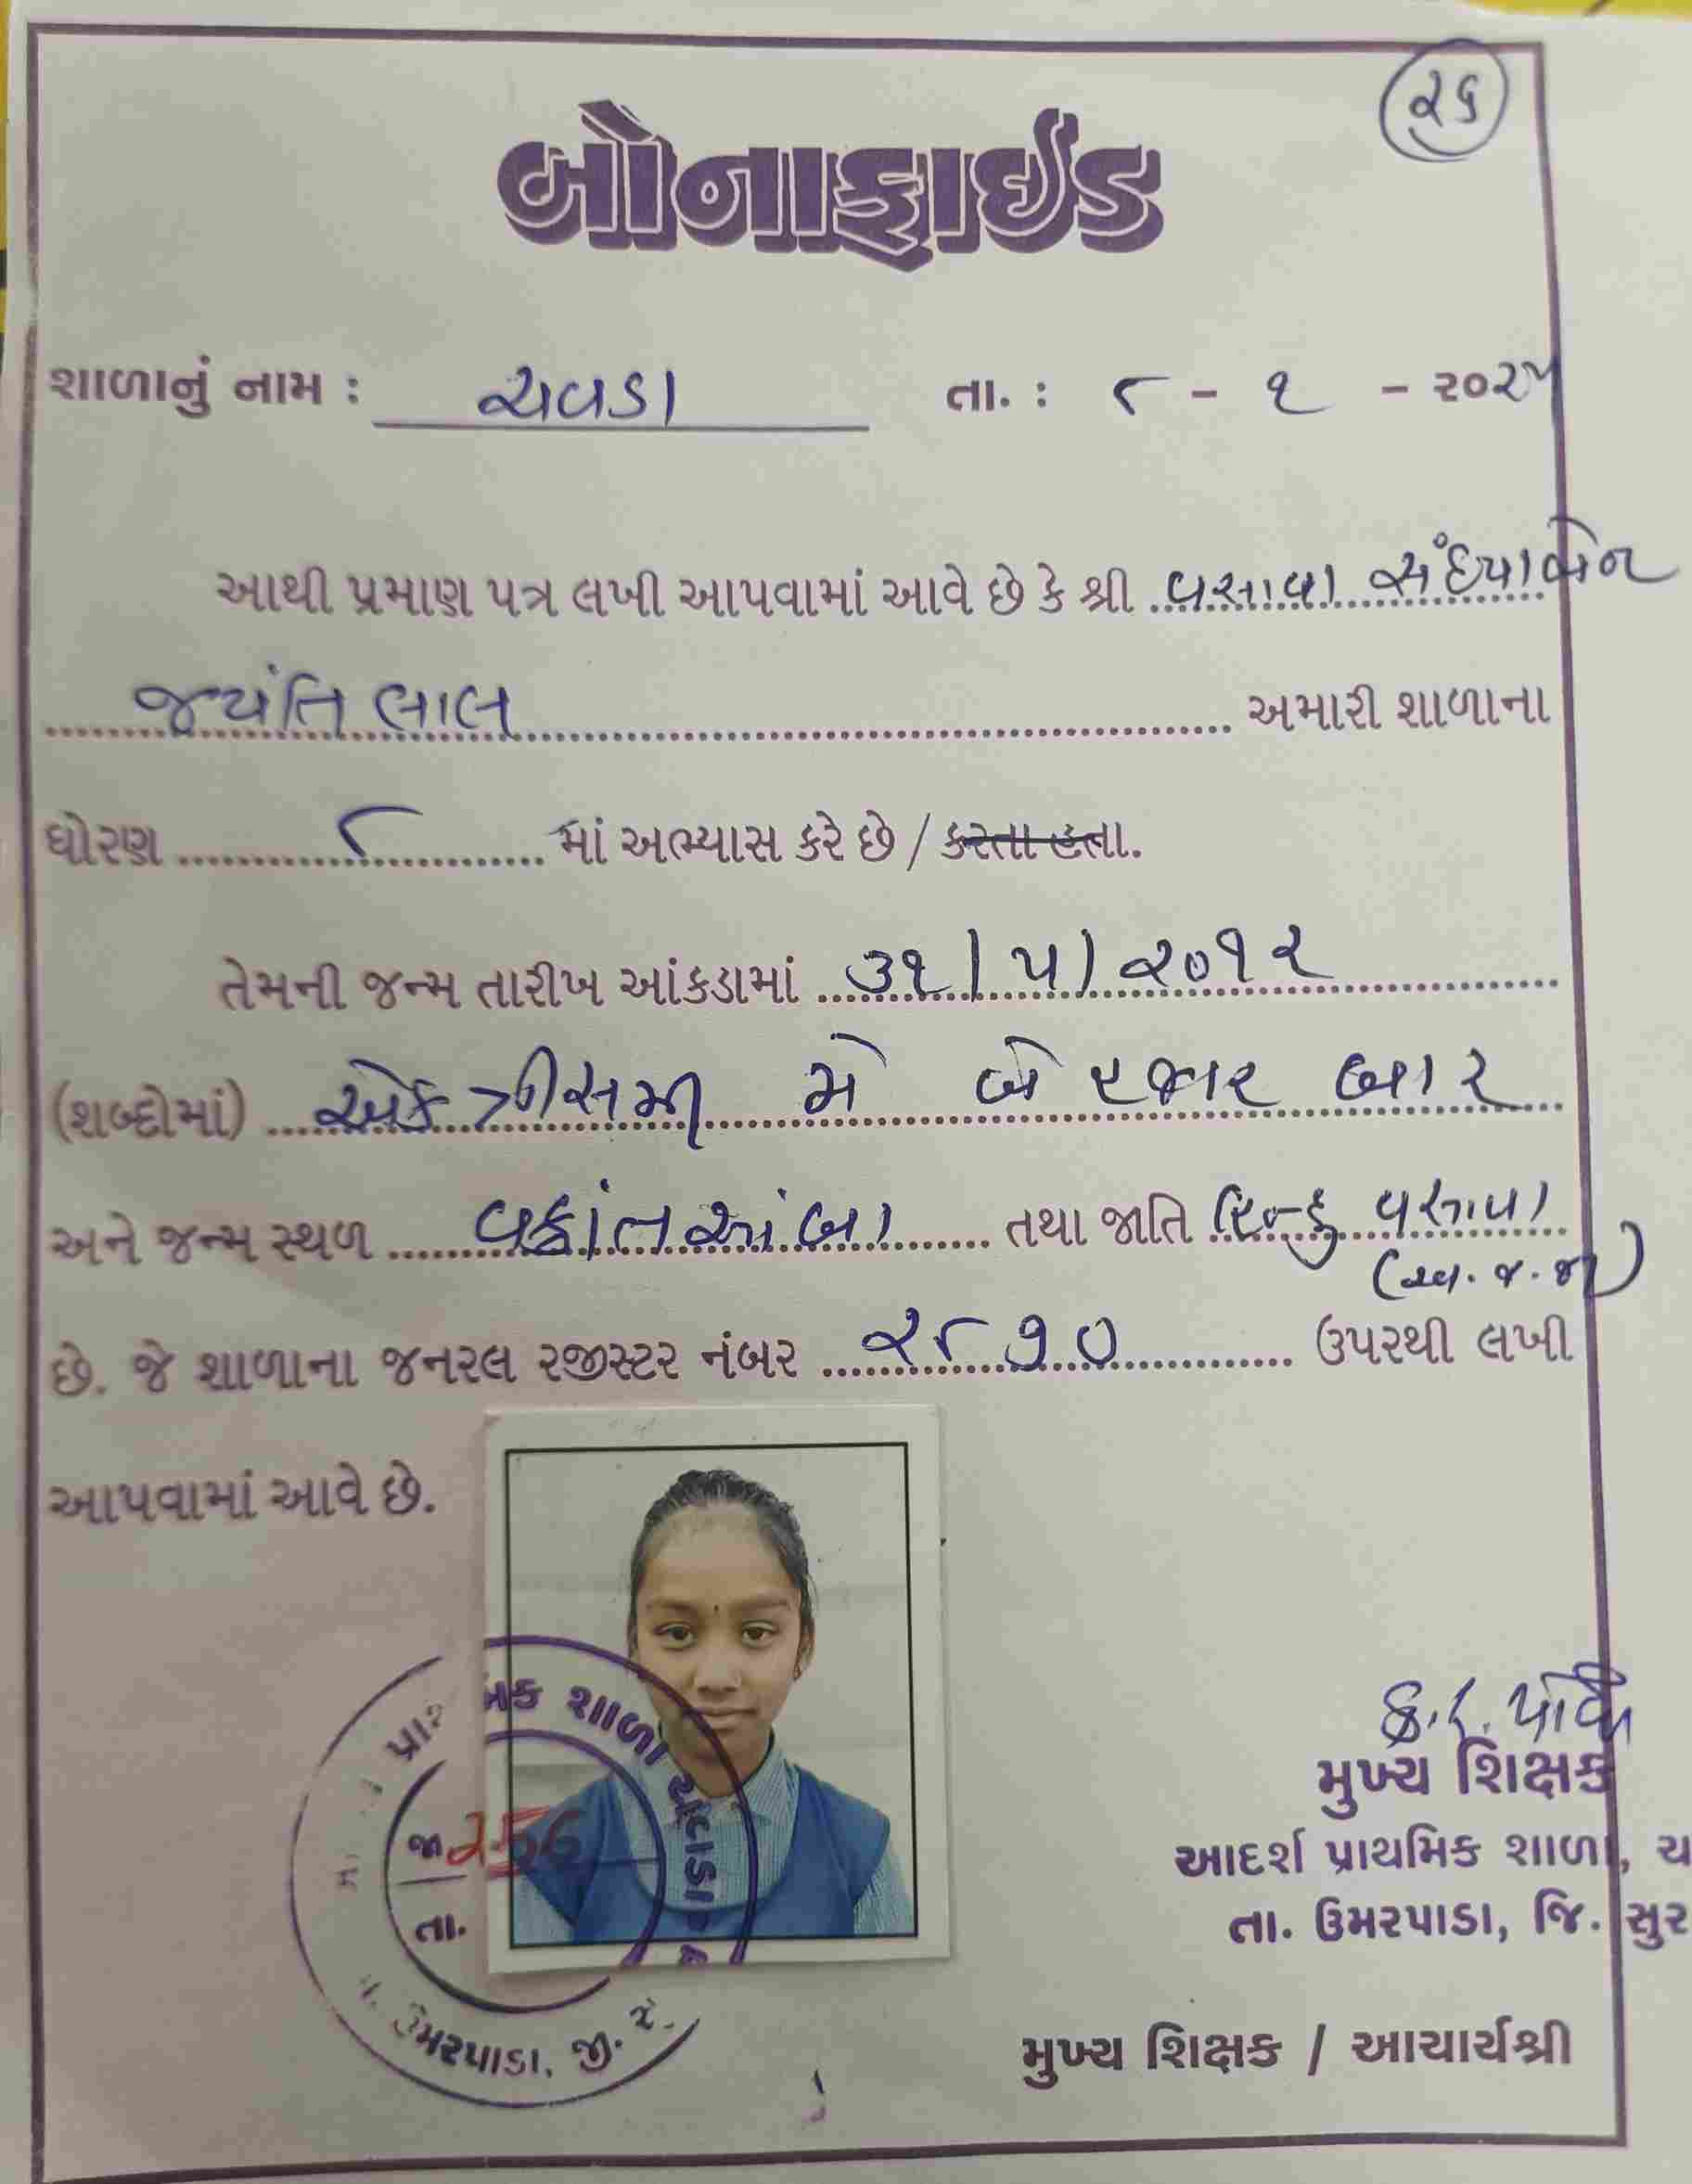 ૨૬
બોનાફાઈડ
શાળાનું નામ : ચવડા તા. : ૮ - ૧ - ૨૦૨૫
આથી પ્રમાણ પત્ર લખી આપવામાં આવે છે કે શ્રી વસાવા સંધ્યાબેન
જયંતિલાલ અમારી શાળાના
ધોરણ ૮ માં અભ્યાસ કરે છે / કરતા હતા.
તેમની જન્મ તારીખ આંકડામાં ૩૧ / ૫ / ૨૦૧૨
(શબ્દોમાં) એકત્રીસમી મે બે હજાર બાર
અને જન્મ સ્થળ તથા જાતિ હિન્દુ વસાવા
(અનુ. જ. જા)
છે. જે શાળાના જનરલ રજીસ્ટર નંબર ૨૮૭૦ ઉપરથી લખી
આપવામાં આવે છે.
શાળા ચવડા
જા 256
તા.
ઉમરપાડા, જી.
મુખ્ય શિક્ષક
આદર્શ પ્રાથમિક શાળા, ચ
તા. ઉમરપાડા, જિ. સુર
મુખ્ય શિક્ષક / આચાર્યશ્રી